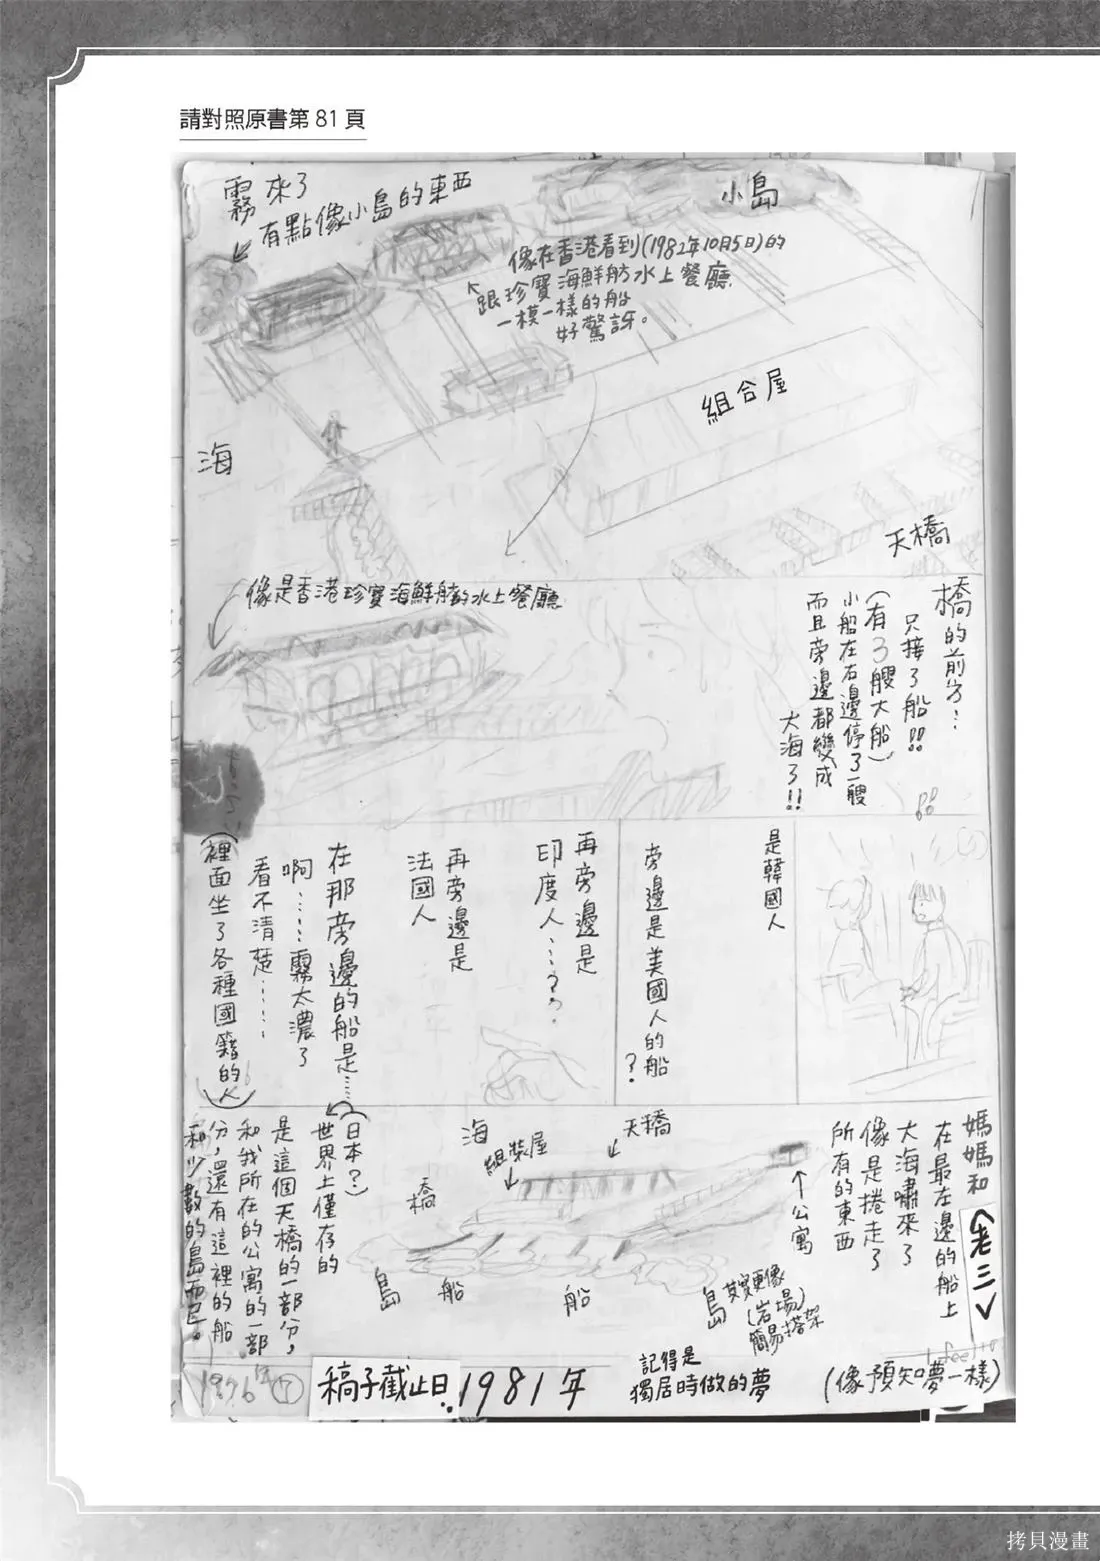 請對照原書第81頁
霧來了
有點像小島的東西
小島
像在香港看到(1982年10月5日)的
跟珍寶海鮮舫水上餐廳
一模一樣的船
好驚訝。
組合屋
海
天橋
像是香港珍寶海鮮舫的水上餐廳
橋的前方…
只接了船!!
(有3艘大船)
小船在右邊停了一艘
而且旁邊都變成
大海了!!
是韓國人
旁邊是美國人的船
?
再旁邊是
印度人……??
再旁邊是
法國人
在那旁邊的船是……
啊……霧太濃了
看不清楚……
(裡面坐了各種國籍的人)
媽媽和
在最左邊的船上
大海嘯來了
像是捲走了
所有的東西
<老三>
海
天橋
組裝屋
橋
公寓
島
船
船
島
其實更像
(岩場)
簡易搭架
(日本?)
世界上僅存的
是這個天橋的一部分,
和我所在的公寓的一部
分,還有這裡的船
和少數的島而已。
1976 ⑦
稿子截止日..1981年
記得是
獨居時做的夢
(像預知夢一樣)
拷貝漫畫